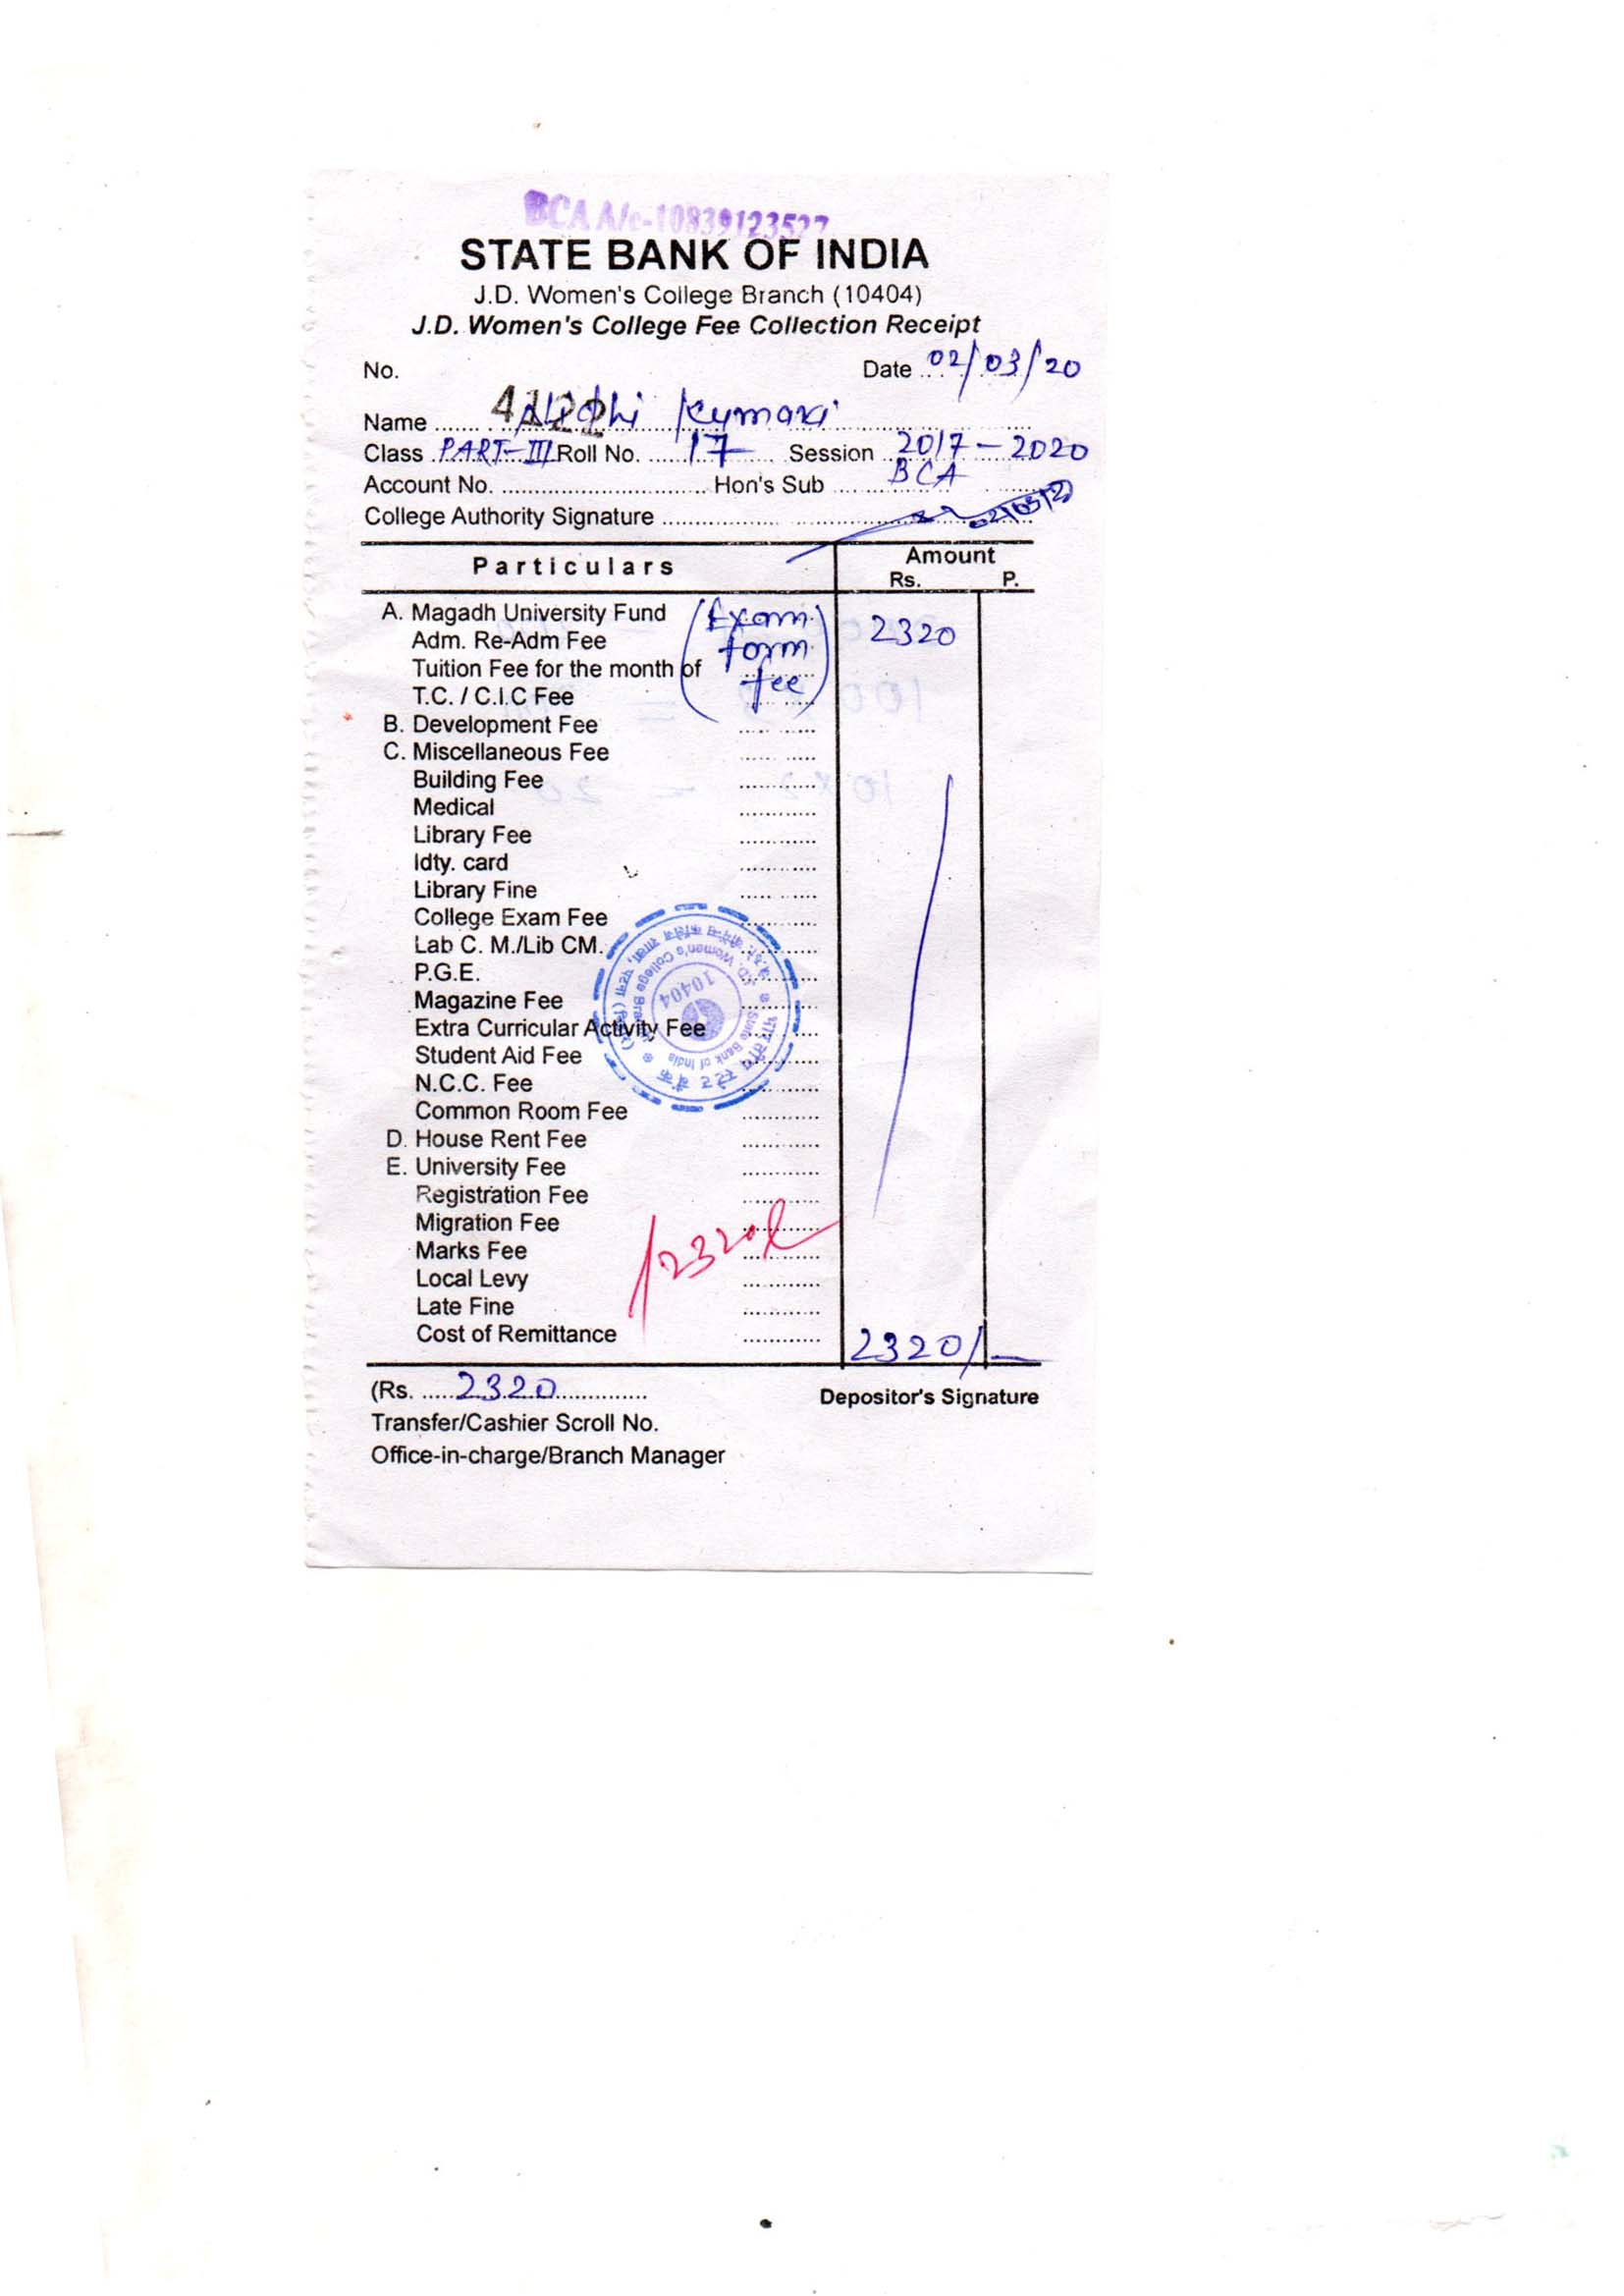 BCA A/c-10839123527
STATE BANK OF INDIA
J.D. Women's College Branch (10404)
J.D. Women's College Fee Collection Receipt
No. 4122 Date 02/03/20
Name Nidhi Kumari
Class PART-III Roll No. 17 Session 2017-2020
Account No. Hon's Sub BCA
College Authority Signature
Particulars Amount
Rs. P.
A. Magadh University Fund (Exam 2320
Adm. Re-Adm Fee form
Tuition Fee for the month of fee)
T.C. / C.I.C Fee
B. Development Fee
C. Miscellaneous Fee
Building Fee
Medical
Library Fee
Idty. card
Library Fine
College Exam Fee
Lab C. M./Lib CM.
P.G.E.
Magazine Fee
Extra Curricular Activity Fee
Student Aid Fee
N.C.C. Fee
Common Room Fee
D. House Rent Fee
E. University Fee
Registration Fee
Migration Fee
Marks Fee
Local Levy
Late Fine
Cost of Remittance 2320/-
2320
(Rs. 2320 Depositor's Signature
Transfer/Cashier Scroll No.
Office-in-charge/Branch Manager
State Bank of India
J.D. Women's College Branch
10404